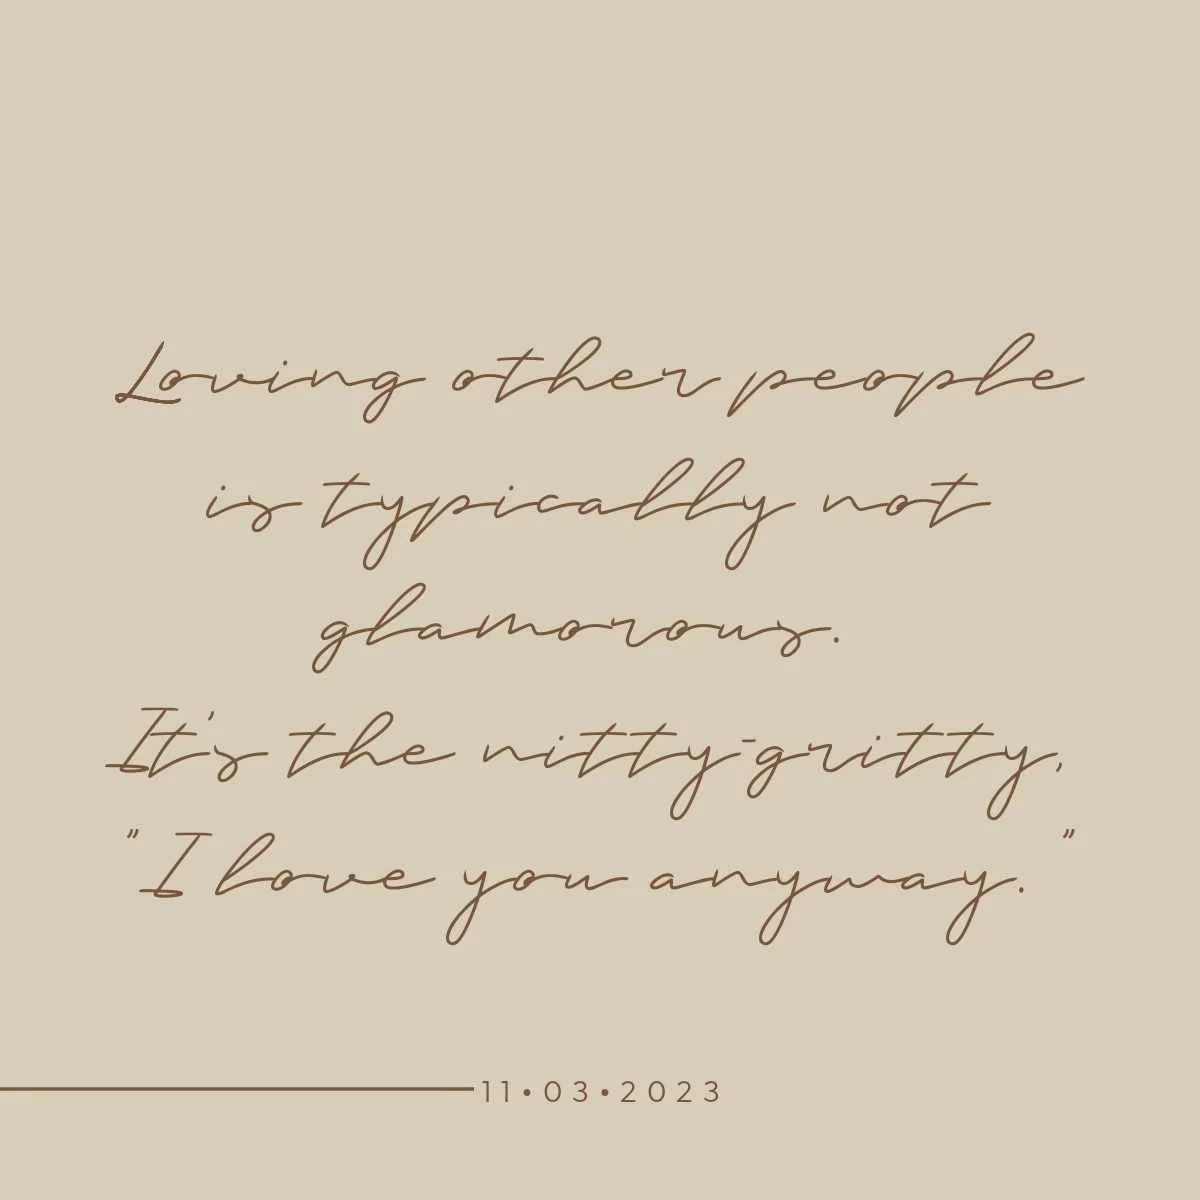 Loving other people
is typically not
glamorous.
It's the nitty-gritty,
"I love you anyway."
11•03•2023